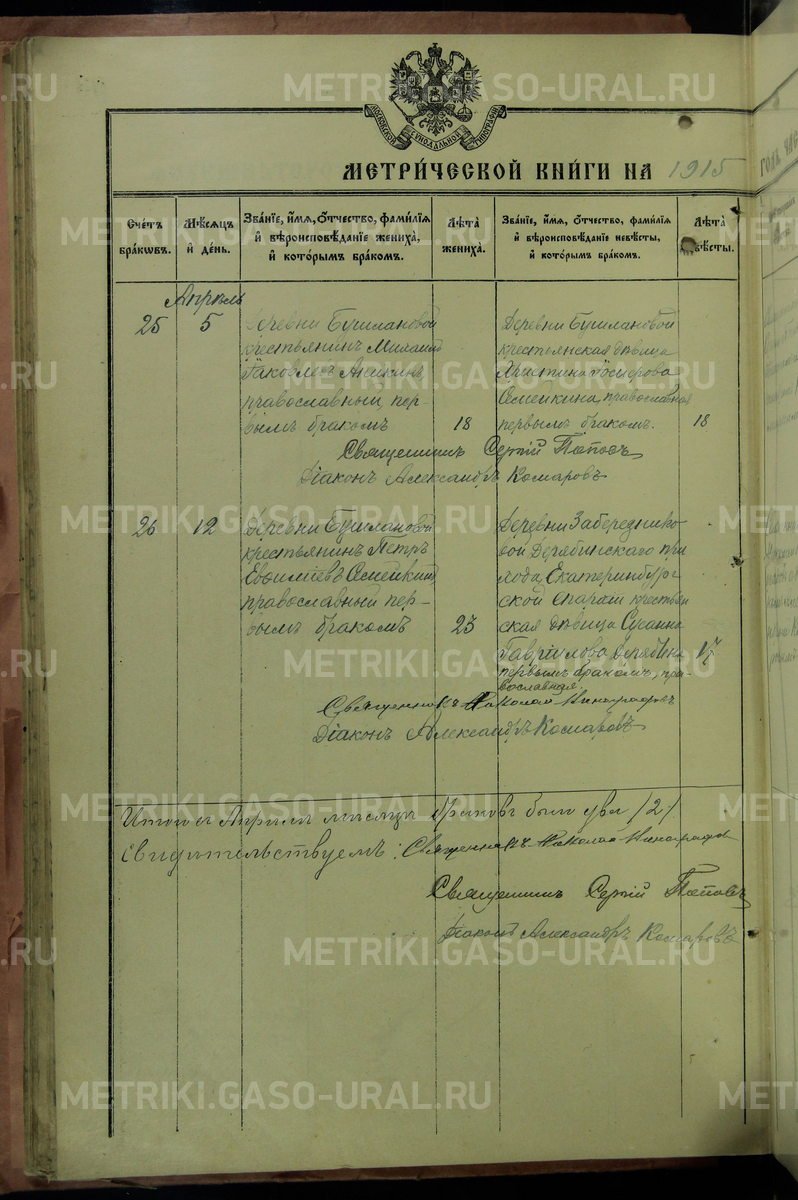 МОСКОВСКОЙ СУНОДАЛЬНОЙ ТИПОГРАФІИ
МЕТРИ́ЧЕСКОЙ КНИ́ГИ НА 1915
Сче́тъ бра́ковъ.
Мѣ́сяцъ и҆ де́нь.
Зва́нїе, и҆́мя, ѻ҆́тчество, фами́лїя и҆ вѣроисповѣ́данїе жениха̀, и҆ кото́рымъ бра́комъ.
Лѣ́та жениха̀.
Зва́нїе, и҆́мя, ѻ҆́тчество, фами́лїя и҆ вѣроисповѣ́данїе невѣ́сты, и҆ кото́рымъ бра́комъ.
Лѣ́та вѣ́сты.
Апрѣль
25
5
Деревни Бушлановой
крестьянинъ Михаилъ
Іаковлевъ
православный, пер-
вымъ бракомъ
18
Деревни Бушлановой
крестьянская дѣвица
Христина
Семейкина, православная
первымъ бракомъ.
18
Священникъ Сергій Поповъ
Діаконъ Александръ Комаровъ
26
12
Деревни Бушлановой
крестьянинъ Петръ
Евѳиміевъ Семейкинъ
православный пер-
вымъ бракомъ
23
Деревни Забереднико-
вой Дерябинскаго при
хода, Екатеринбург
ской епархіи крестьян
ская дѣвица Сусанна
Гавріилова
первымъ бракомъ, пра-
вославная
17
Священникъ Николай Виноградовъ
Діаконъ Александръ Комаровъ
Итого въ Апрѣлѣ мѣсяцѣ браковъ было два /2/
Свидѣтельствуемъ: Священникъ Николай Виноградо
Священникъ Сергій Поповъ
Діаконъ Александръ Комаровъ
METRIKI.GASO-URAL.RU